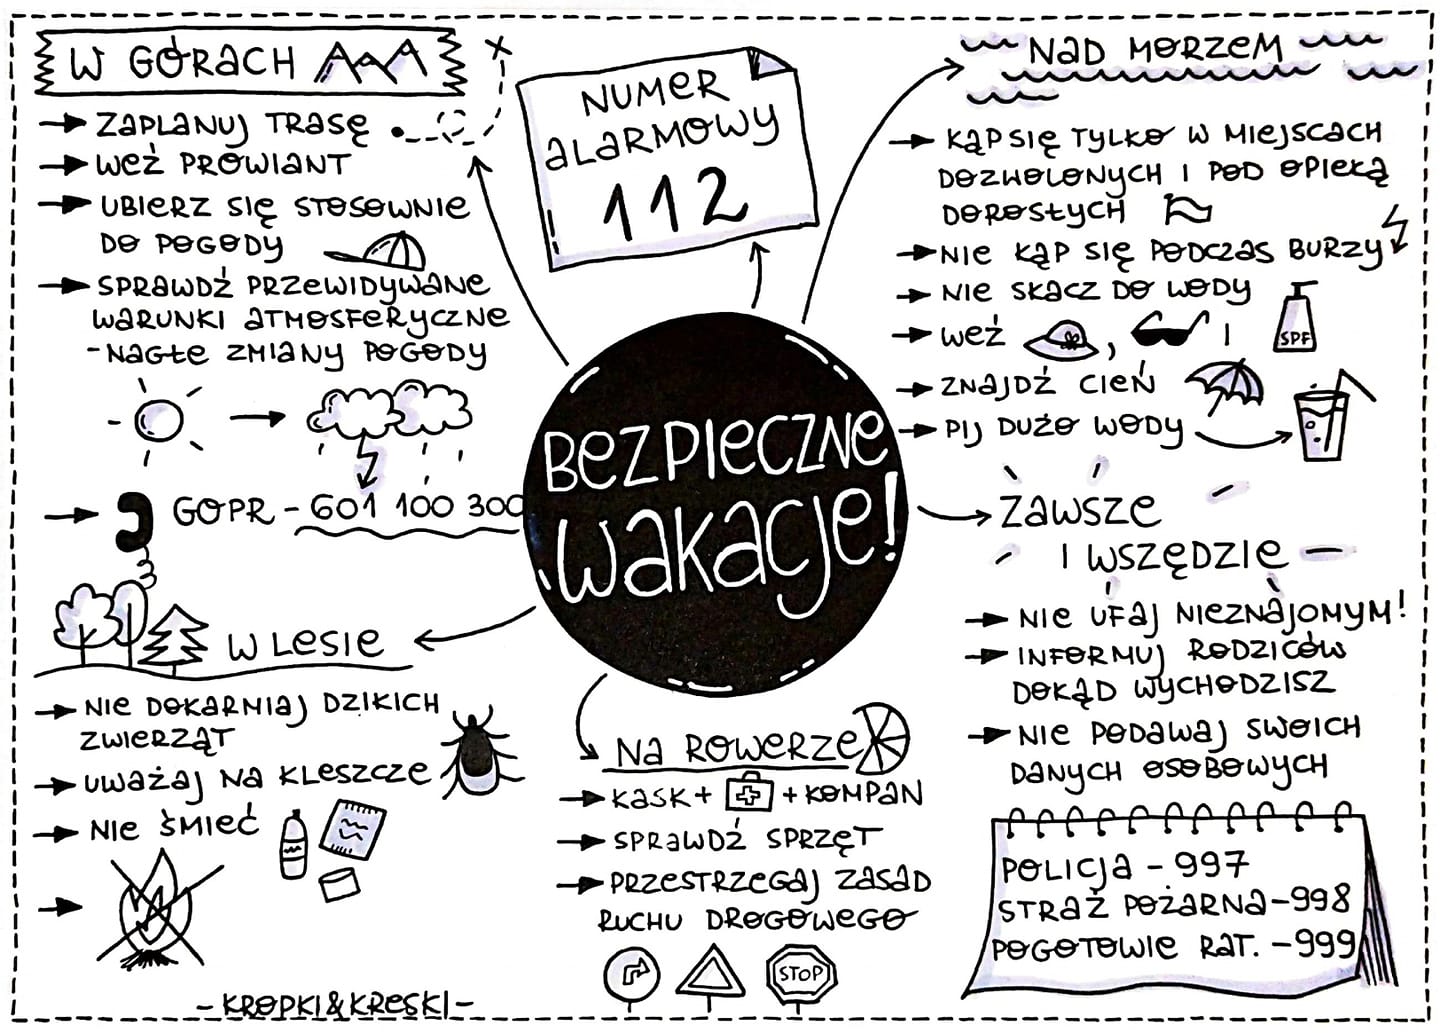 W GÓRACH
ZAPLANUJ TRASĘ
WEŹ PROWIANT
UBIERZ SIĘ STOSOWNIE
DO POGODY
SPRAWDŹ PRZEWIDYWANE
WARUNKI ATMOSFERYCZNE
- NAGŁE ZMIANY POGODY
GOPR - 601 100 300
NUMER
ALARMOWY
112
NAD MORZEM
KĄP SIĘ TYLKO W MIEJSCACH
DOZWOLONYCH I POD OPIEKĄ
DOROSŁYCH
NIE KĄP SIĘ PODCZAS BURZY
NIE SKACZ DO WODY
WEŹ , I
SPF
ZNAJDŹ CIEŃ
PIJ DUŻO WODY
BEZPIECZNE
WAKACJE!
ZAWSZE
I WSZĘDZIE
NIE UFAJ NIEZNAJOMYM!
INFORMUJ RODZICÓW
DOKĄD WYCHODZISZ
NIE PODAWAJ SWOICH
DANYCH OSOBOWYCH
W LESIE
NIE DOKARMIAJ DZIKICH
ZWIERZĄT
UWAŻAJ NA KLESZCZE
NIE ŚMIEĆ
NA ROWERZE
KASK + + KOMPAN
SPRAWDŹ SPRZĘT
PRZESTRZEGAJ ZASAD
RUCHU DROGOWEGO
STOP
POLICJA - 997
STRAŻ POŻARNA - 998
POGOTOWIE RAT. - 999
- KROPKI&KRESKI -